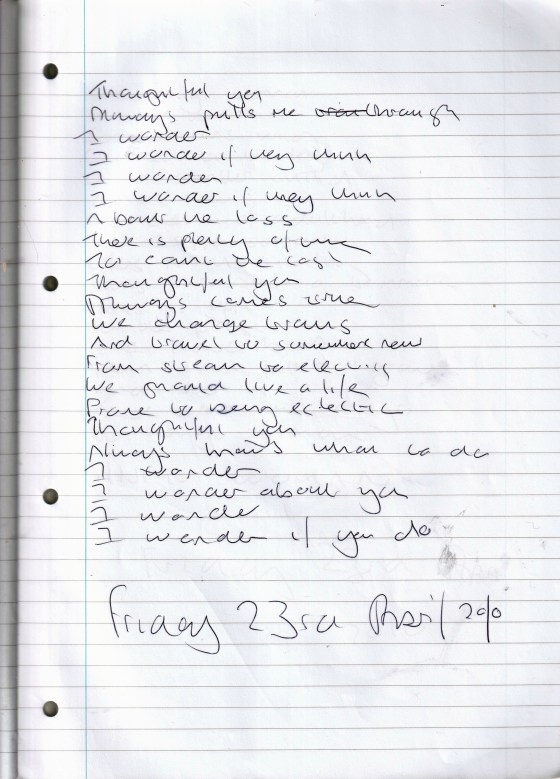 Thoughtful you
Always pulls me through
I wonder
I wonder if they think
I wonder
I wonder if they think
About the loss
There is plenty of time
To count the cost
Thoughtful you
Always comes true
We change trains
And travel to somewhere new
From steam to electric
We should live a life
Prone to being eclectic
Thoughtful you
Always knows what to do
I wonder
I wonder about you
I wonder
I wonder if you do
Friday 23rd April 2010